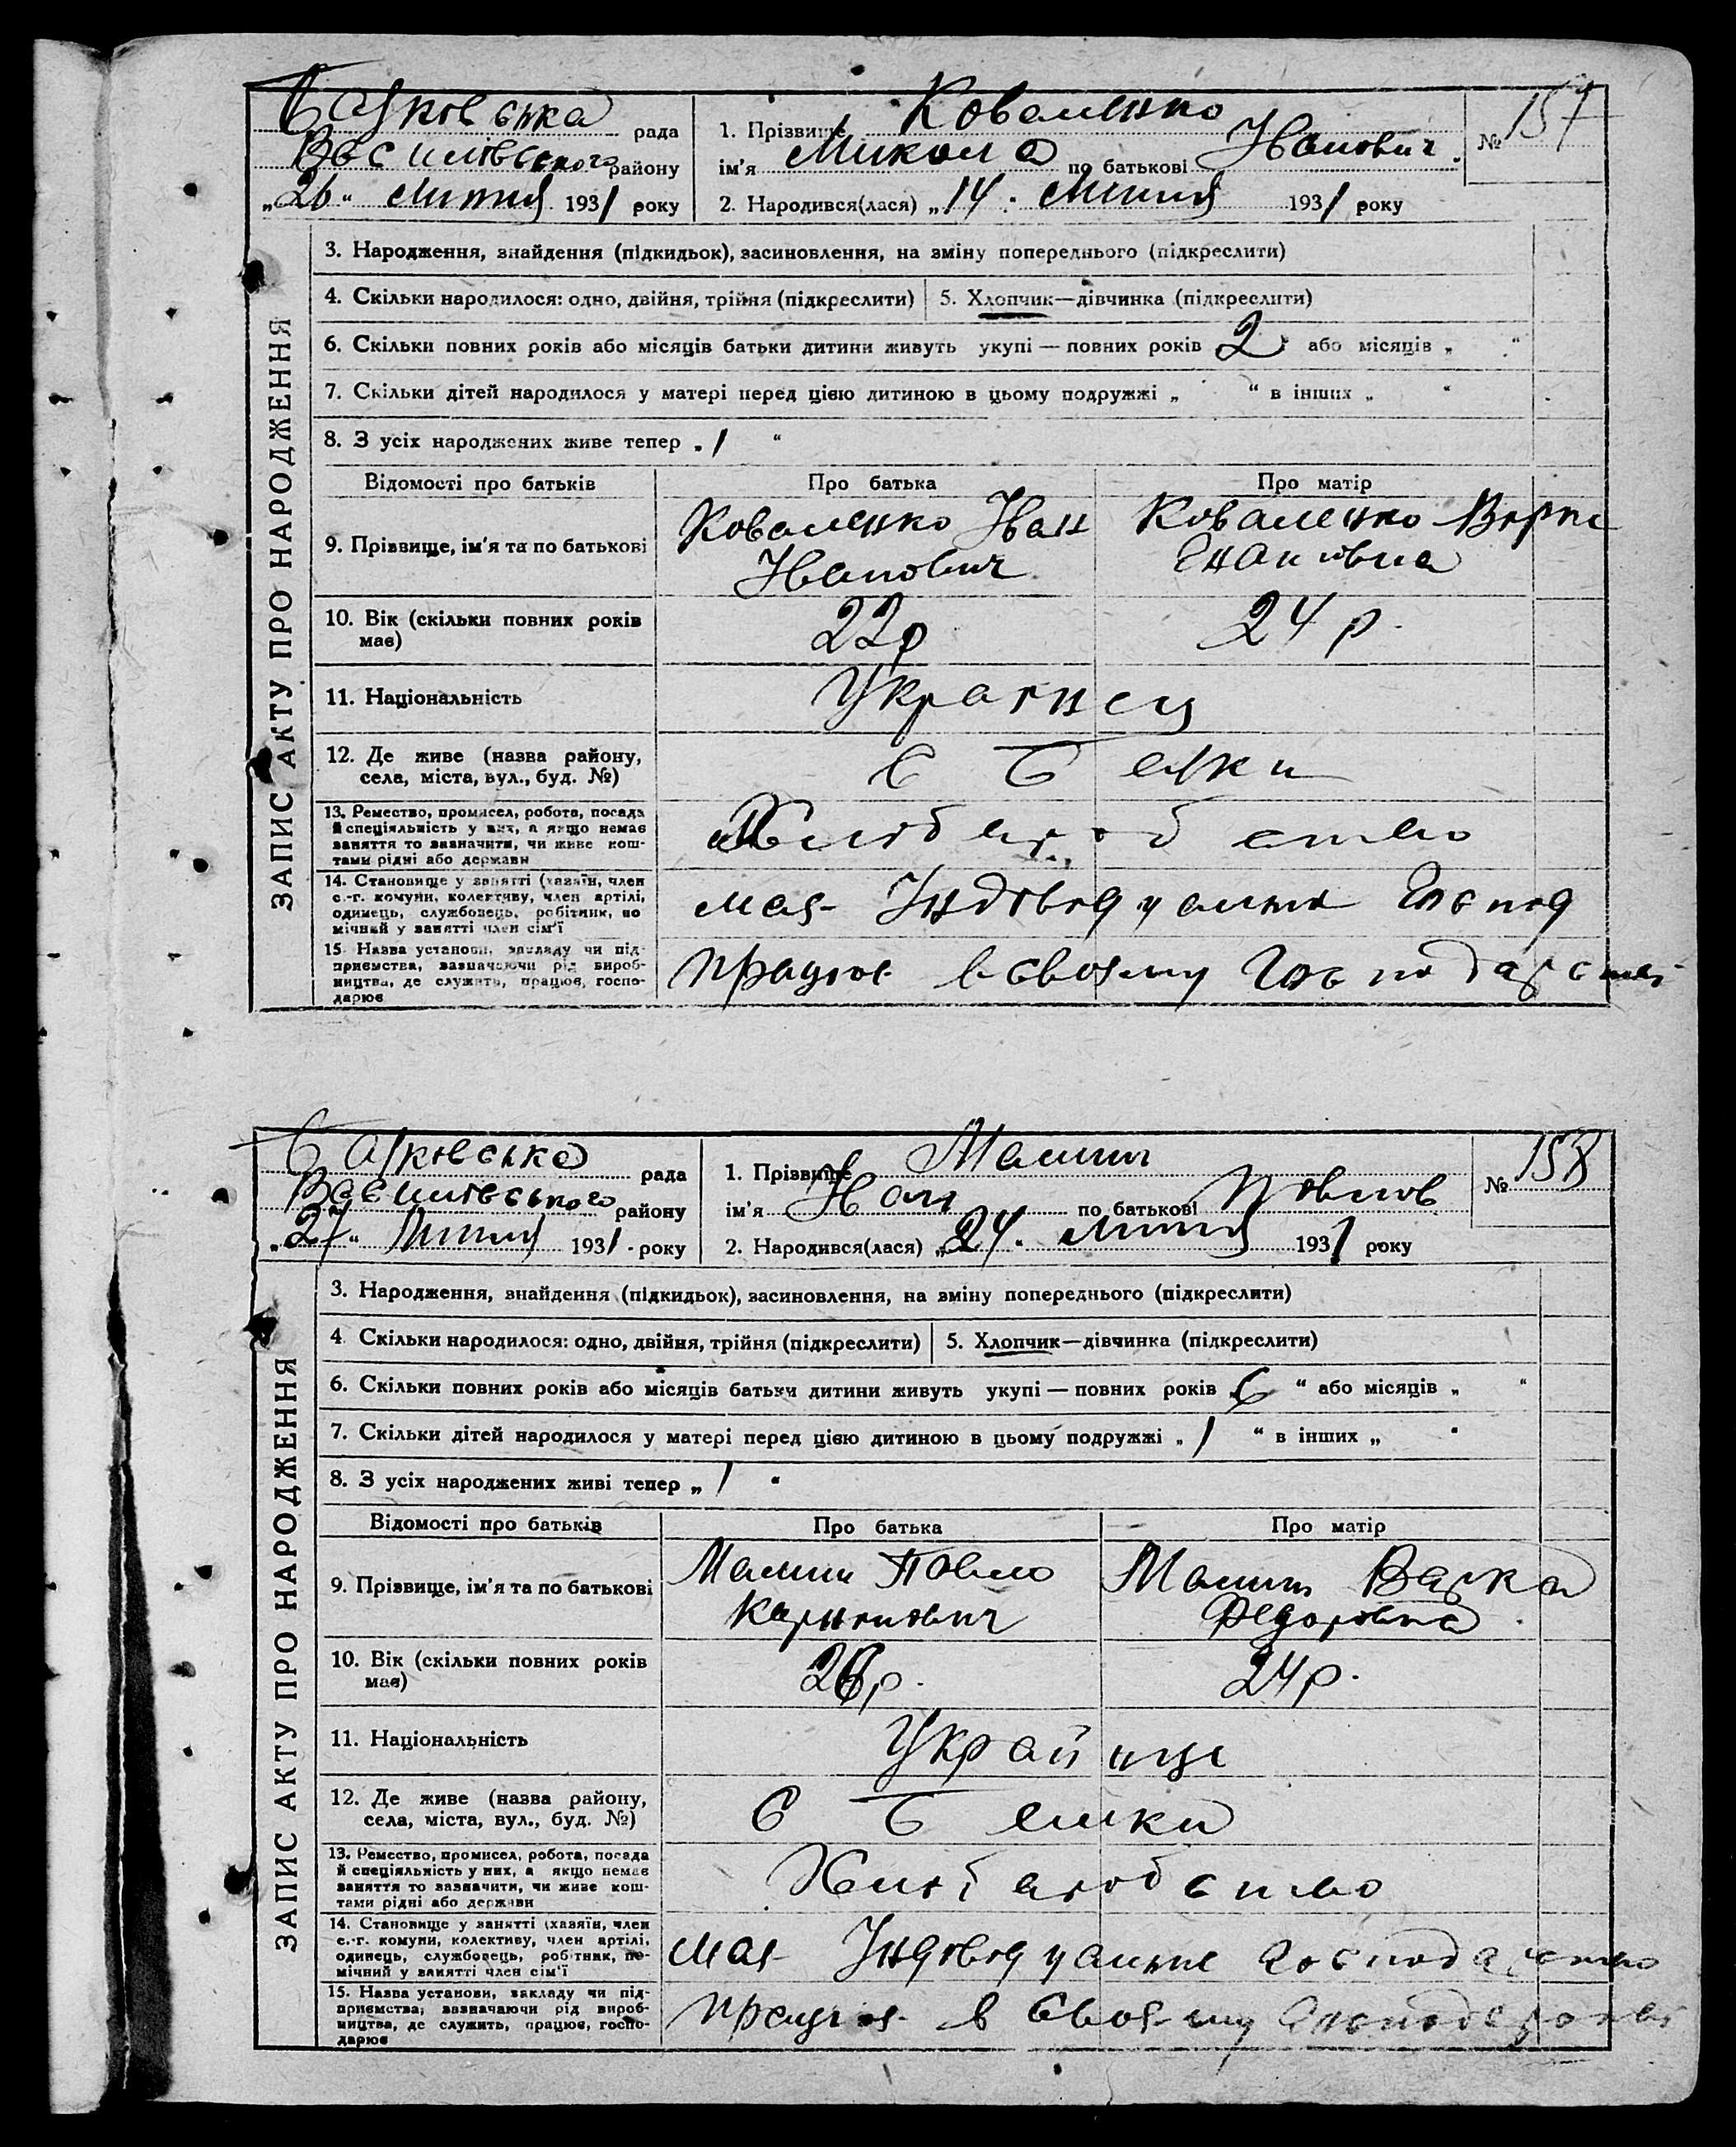 Балковська рада
Василівського району
„26“ липня 1931 року
1. Прізвище Коваленко
ім'я Микола по батькові Іванович
№ 157
2. Народився(лася) „14“ липня 1931 року
ЗАПИС АКТУ ПРО НАРОДЖЕННЯ
3. Народження, знайдення (підкидьок), засиновлення, на зміну попереднього (підкреслити)
4. Скільки народилося: одно, двійня, трійня (підкреслити)
5. Хлопчик—дівчинка (підкреслити)
6. Скільки повних років або місяців батьки дитини живуть укупі — повних років 2 або місяців „ “
7. Скільки дітей народилося у матері перед цією дитиною в цьому подружжі „ “ в інших „ “
8. З усіх народжених живе тепер „1 “
Відомості про батьків
Про батька
Про матір
9. Прізвище, ім'я та по батькові
Коваленко Іван
Іванович
Коваленко
10. Вік (скільки повних років
має)
22р
24 р.
11. Національність
Украінец
12. Де живе (назва району,
села, міста, вул., буд. №)
С Балки
13. Ремество, промисел, робота, посада
й спеціяльність у них, а якщо немає
заняття то зазначити, чи живе кош-
тами рідні або держави
Хліборобство
14. Становище у занятті (хазяїн, член
с.-г. комуни, колективу, член артілі,
одинець, службовець, робітник, по
мічний у занятті член сім'ї
має Індівідуальне Господ
15. Назва установи, закладу чи під-
приємства, зазначаючи рід вироб-
ництва, де служить, працює, госпо-
дарює
працює в своєму Господарстві
Балковська рада
Василівського району
„27“ липня 1931 року
1. Прізвище Малиш
ім'я Іван по батькові Павлов
№ 158
2. Народився(лася) „24“ липня 1931 року
ЗАПИС АКТУ ПРО НАРОДЖЕННЯ
3. Народження, знайдення (підкидьок), засиновлення, на зміну попереднього (підкреслити)
4. Скільки народилося: одно, двійня, трійня (підкреслити)
5. Хлопчик—дівчинка (підкреслити)
6. Скільки повних років або місяців батьки дитини живуть укупі — повних років „6 “ або місяців „ “
7. Скільки дітей народилося у матері перед цією дитиною в цьому подружжі „1 “ в інших „ “
8. З усіх народжених живі тепер „1 “
Відомості про батьків
Про батька
Про матір
9. Прізвище, ім'я та по батькові
Малиш Павло
Малиш Варка
Федоровна
10. Вік (скільки повних років
має)
26р.
24р.
11. Національність
Украйнці
12. Де живе (назва району,
села, міста, вул., буд. №)
С Балки
13. Ремество, промисел, робота, посада
й спеціяльність у них, а якщо немає
заняття то зазначити, чи живе кош-
тами рідні або держави
Хліборобство
14. Становище у занятті (хазяїн, член
с.-г. комуни, колективу, член артілі,
одинець, службовець, робітник, по-
мічний у занятті член сім'ї
має Індівідуальне господарство
15. Назва установи, закладу чи під-
приємства, зазначаючи рід вироб-
ництва, де служить, працює, госпо-
дарює
працює в своєму господарстві